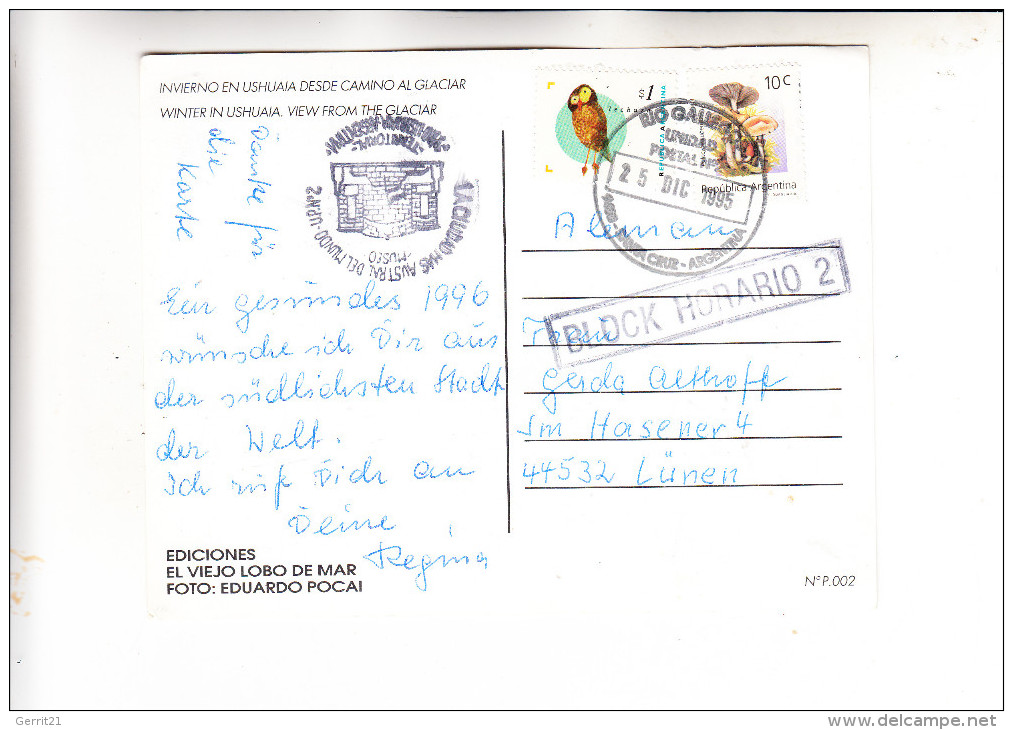 INVIERNO EN USHUAIA DESDE CAMINO AL GLACIAR
WINTER IN USHUAIA. VIEW FROM THE GLACIAR
Danke für
die
Karte
LA CIUDAD MAS AUSTRAL DEL MUNDO - U.P. Nº2
MUSEO
TERRITORIAL
Ein gesundes 1996
wünsche ich Dir aus
der südlichsten Stadt
der Welt.
Ich ruf Dich an
Deine
Regina
EDICIONES
EL VIEJO LOBO DE MAR
FOTO: EDUARDO POCAI
$1
REPUBLICA ARGENTINA
10c
República Argentina
RIO GALLEGOS
UNIDAD
POSTAL
25 DIC 1995
SANTA CRUZ - ARGENTINA
BLOCK HORARIO 2
Alemania
Frau
Gerda Althoff
Im Hasener 4
44532 Lünen
NºP.002
Gerrit21
delcampe.net